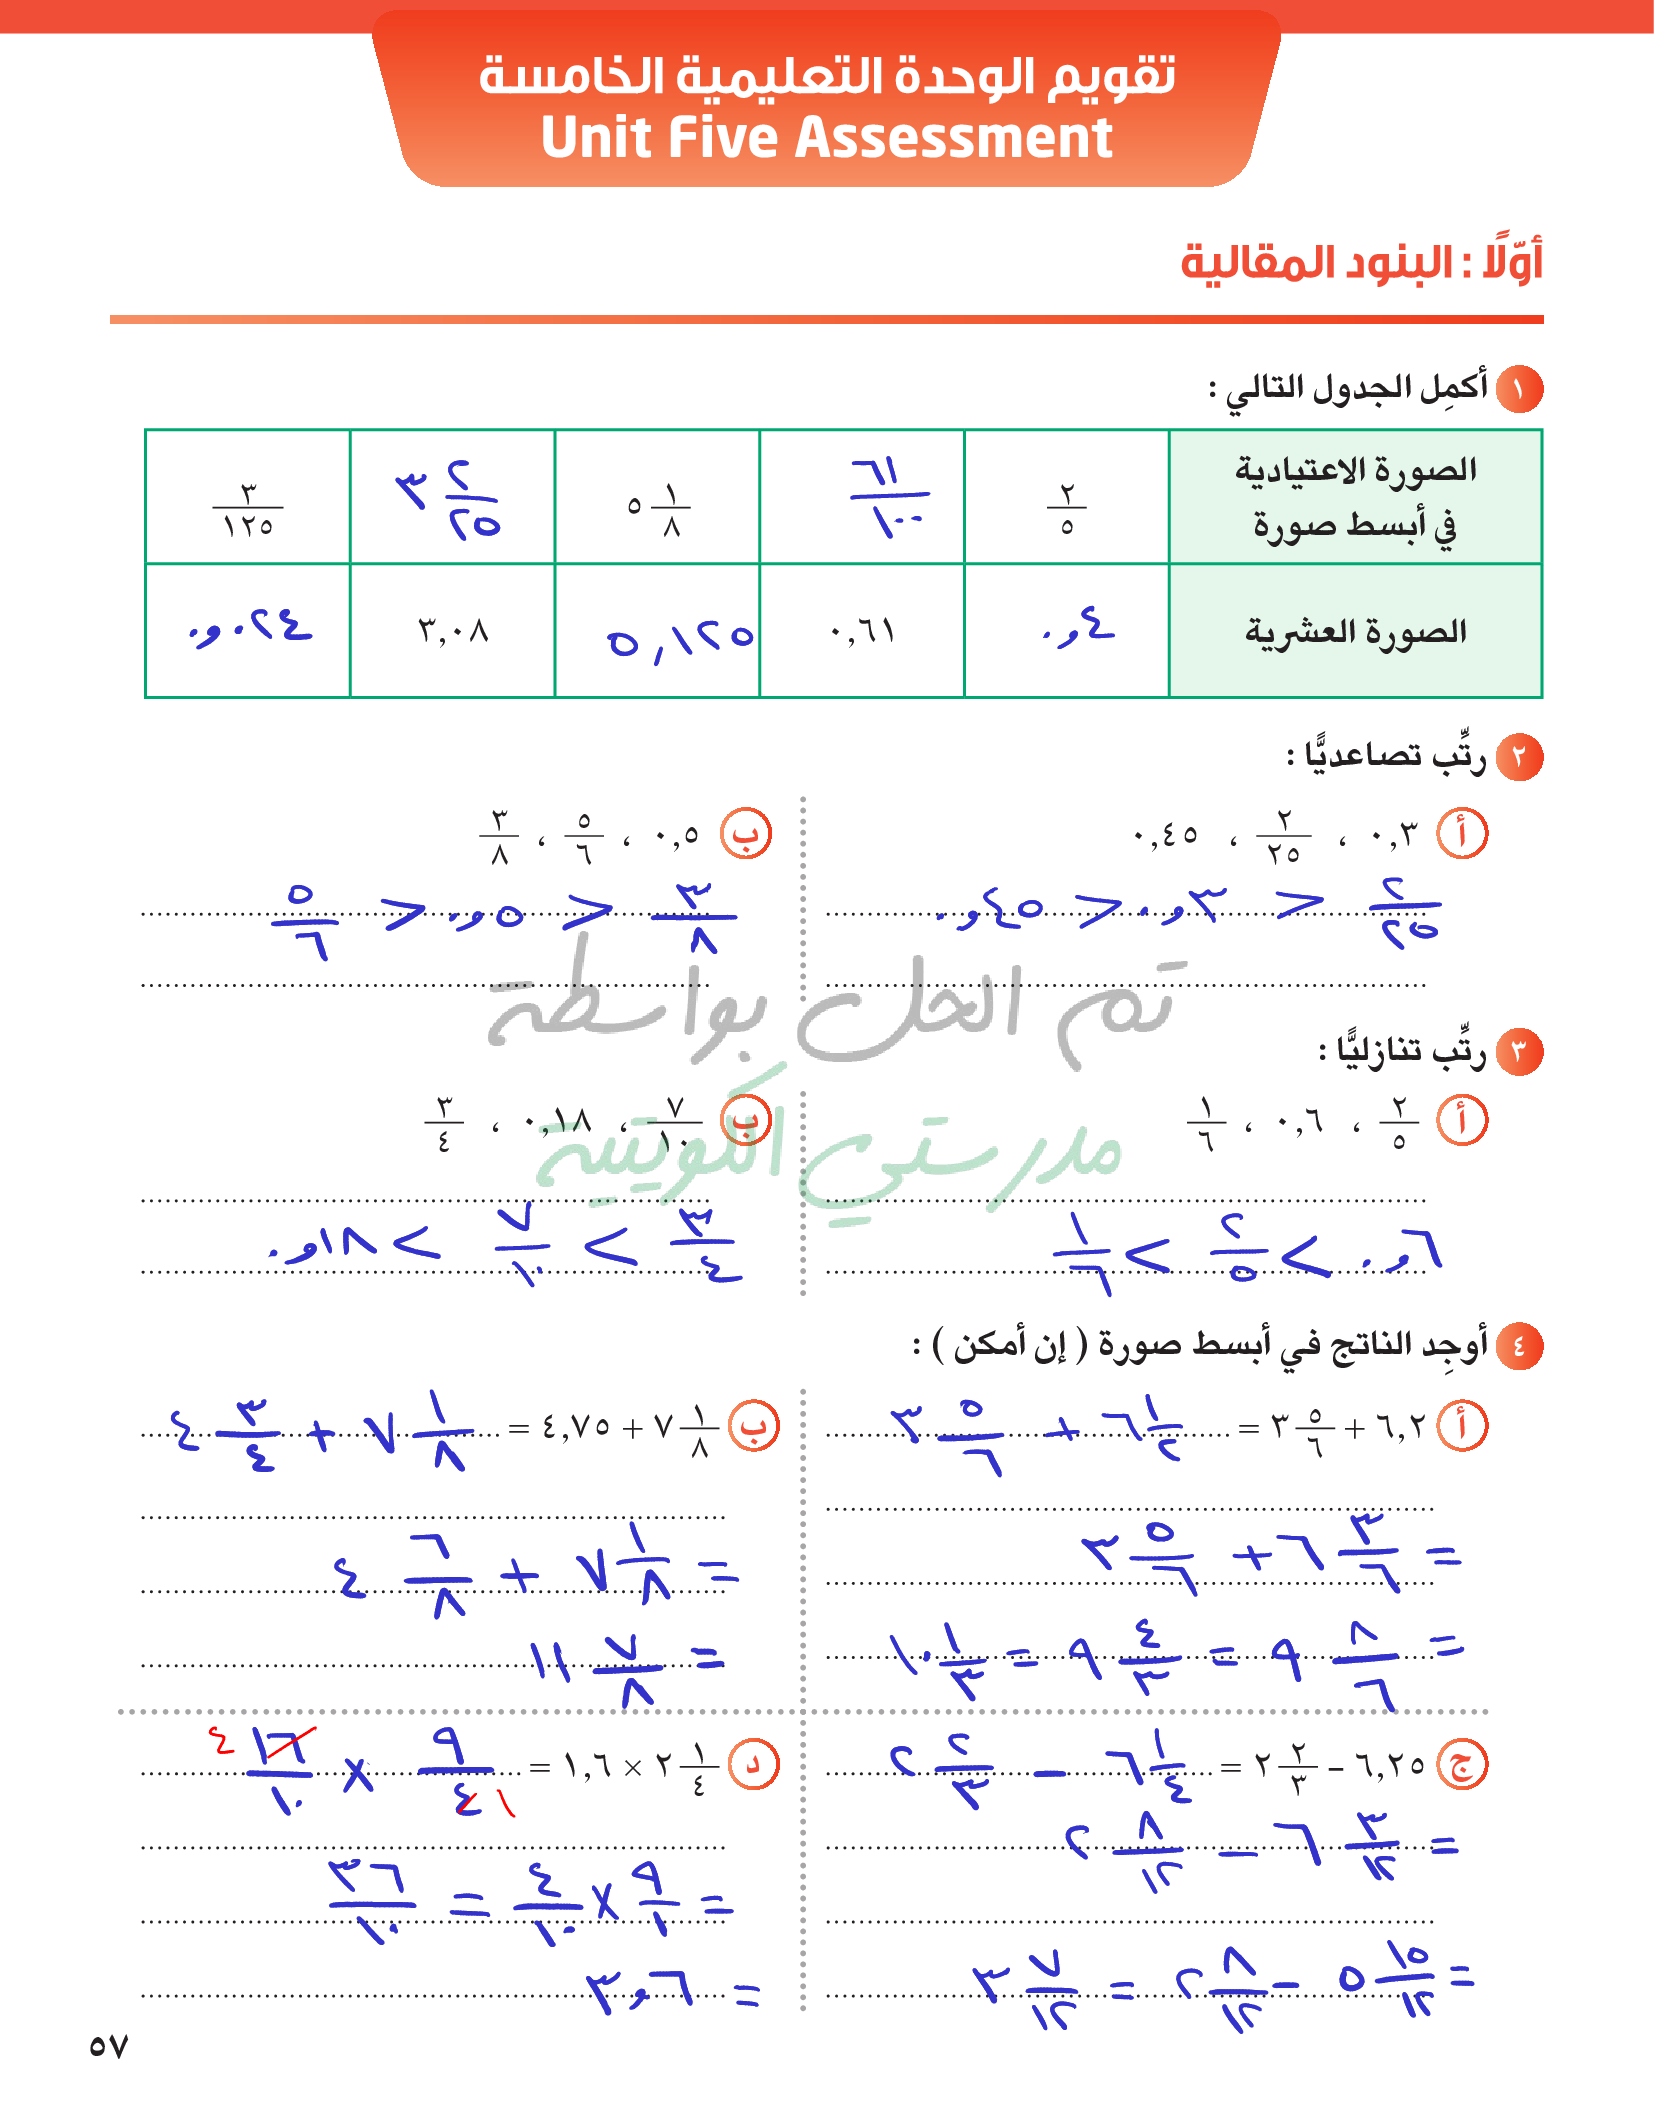 تقويم الوحدة التعليمية الخامسة
Unit Five Assessment
أوّلًا : البنود المقالية
١ أكمِل الجدول التالي :
الصورة الاعتيادية في أبسط صورة | ٢/٥ | ٦١/١٠٠ | ٥ ١/٨ | ٣ ٢/٢٥ | ٣/١٢٥
الصورة العشرية | ٠,٤ | ٠,٦١ | ٥,١٢٥ | ٣,٠٨ | ٠,٠٢٤
٢ رتِّب تصاعديًّا :
أ ٠,٣ ، ٢/٢٥ ، ٠,٤٥
٢/٢٥ > ٠,٣ > ٠,٤٥
ب ٠,٥ ، ٥/٦ ، ٣/٨
٣/٨ > ٠,٥ > ٥/٦
تم الحل بواسطة
مدرستي الكويتية
٣ رتِّب تنازليًّا :
أ ٢/٥ ، ٠,٦ ، ١/٦
٠,٦ < ٢/٥ < ١/٦
ب ٧/١٠ ، ٠,١٨ ، ٣/٤
٣/٤ < ٧/١٠ < ٠,١٨
٤ أوجِد الناتج في أبسط صورة ( إن أمكن ) :
أ ٦,٢ + ٣ ٥/٦ = ٦ ١/٢ + ٣ ٥/٦
= ٦ ٣/٦ + ٣ ٥/٦
= ٩ ٨/٦ = ٩ ٤/٣ = ١٠ ١/٣
ب ٧ ١/٨ + ٤,٧٥ = ٧ ١/٨ + ٤ ٣/٤
= ٧ ١/٨ + ٤ ٦/٨
= ١١ ٧/٨
ج ٦,٢٥ – ٢ ٢/٣ = ٦ ١/٤ – ٢ ٢/٣
= ٦ ٣/١٢ – ٢ ٨/١٢
= ٥ ١٥/١٢ – ٢ ٨/١٢ = ٣ ٧/١٢
د ٢ ١/٤ × ١,٦ = ٩/٤ × ١٦/١٠ ١ ٤
= ٩/١ × ٤/١٠ = ٣٦/١٠
= ٣,٦
٥٧